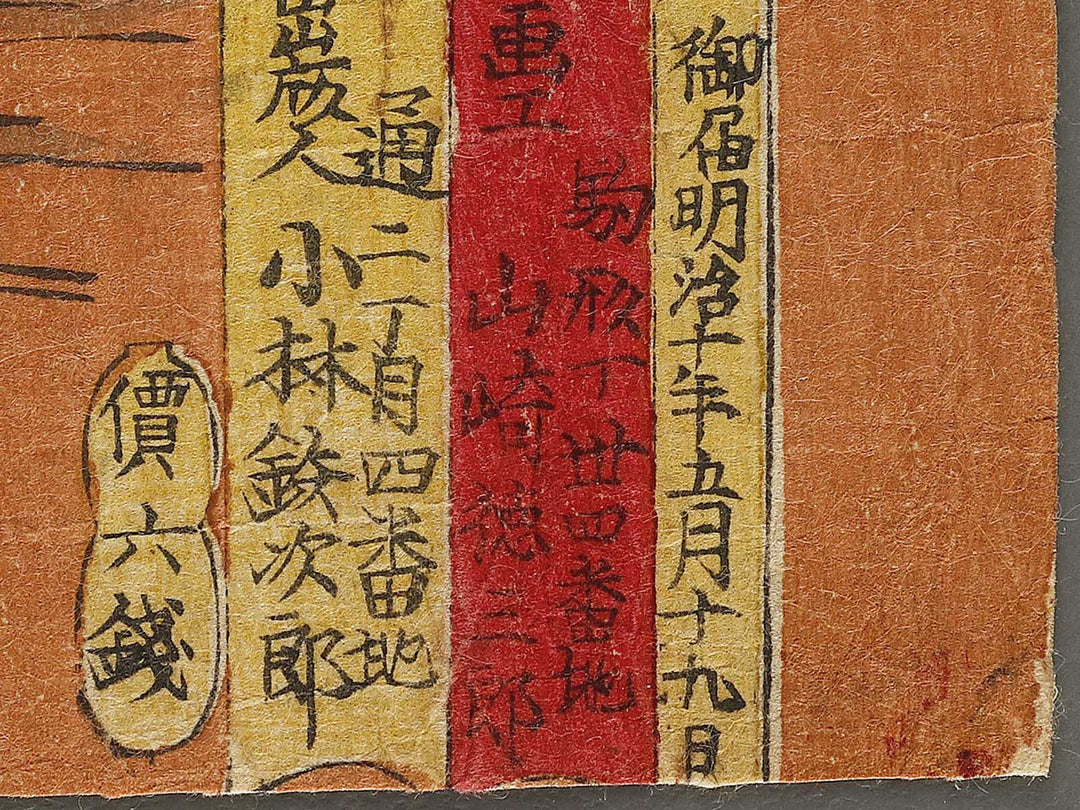 御届明治十年五月十九日
駒形丁卅四番地
画工 山崎徳三郎
通二丁目四番地
出版人 小林鉄次郎
價六錢